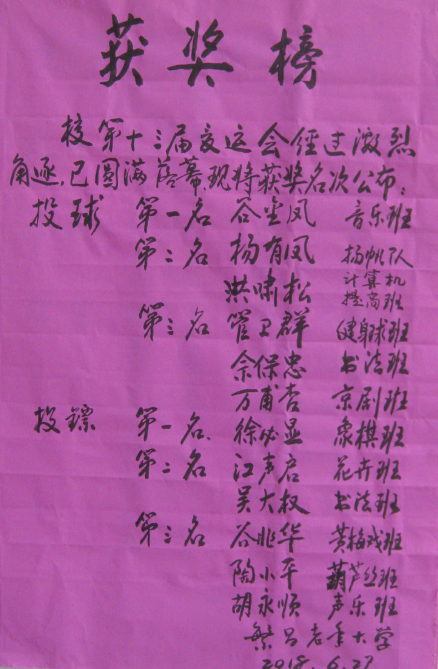 获奖榜
校第十三届夏运会经过激烈
角逐,已圆满落幕,现将获奖名次公布:
投球 第一名 谷生凤 音乐班
第二名 杨有凤 扬帆队
洪啸松 计算机提高班
第三名 管卫群 健身球班
余保忠 书法班
万甫杏 京剧班
投镖 第一名 徐必显 象棋班
第二名 江声启 花卉班
吴大权 书法班
第三名 谷兆华 黄梅戏班
陶小平 葫芦丝班
胡永顺 声乐班
繁昌老年大学
2018.6.27